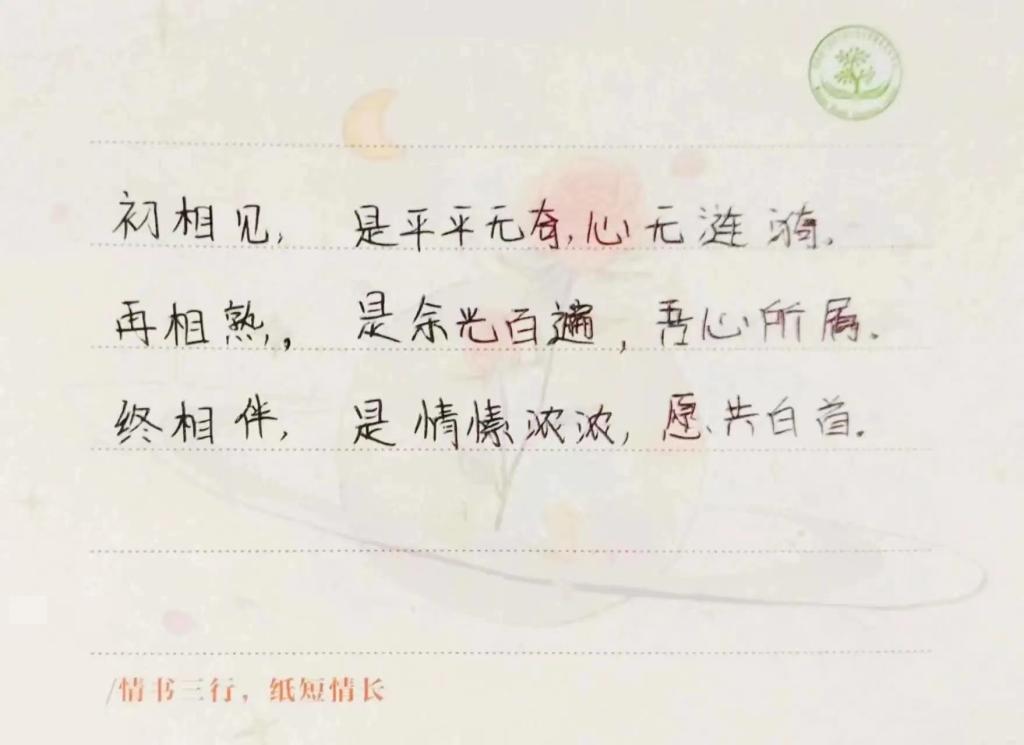 初相见，是平平无奇，心无涟漪。
再相熟，，是余光百遍，吾心所属.
终相伴，是情愫浓浓，愿共白首.
/情书三行，纸短情长